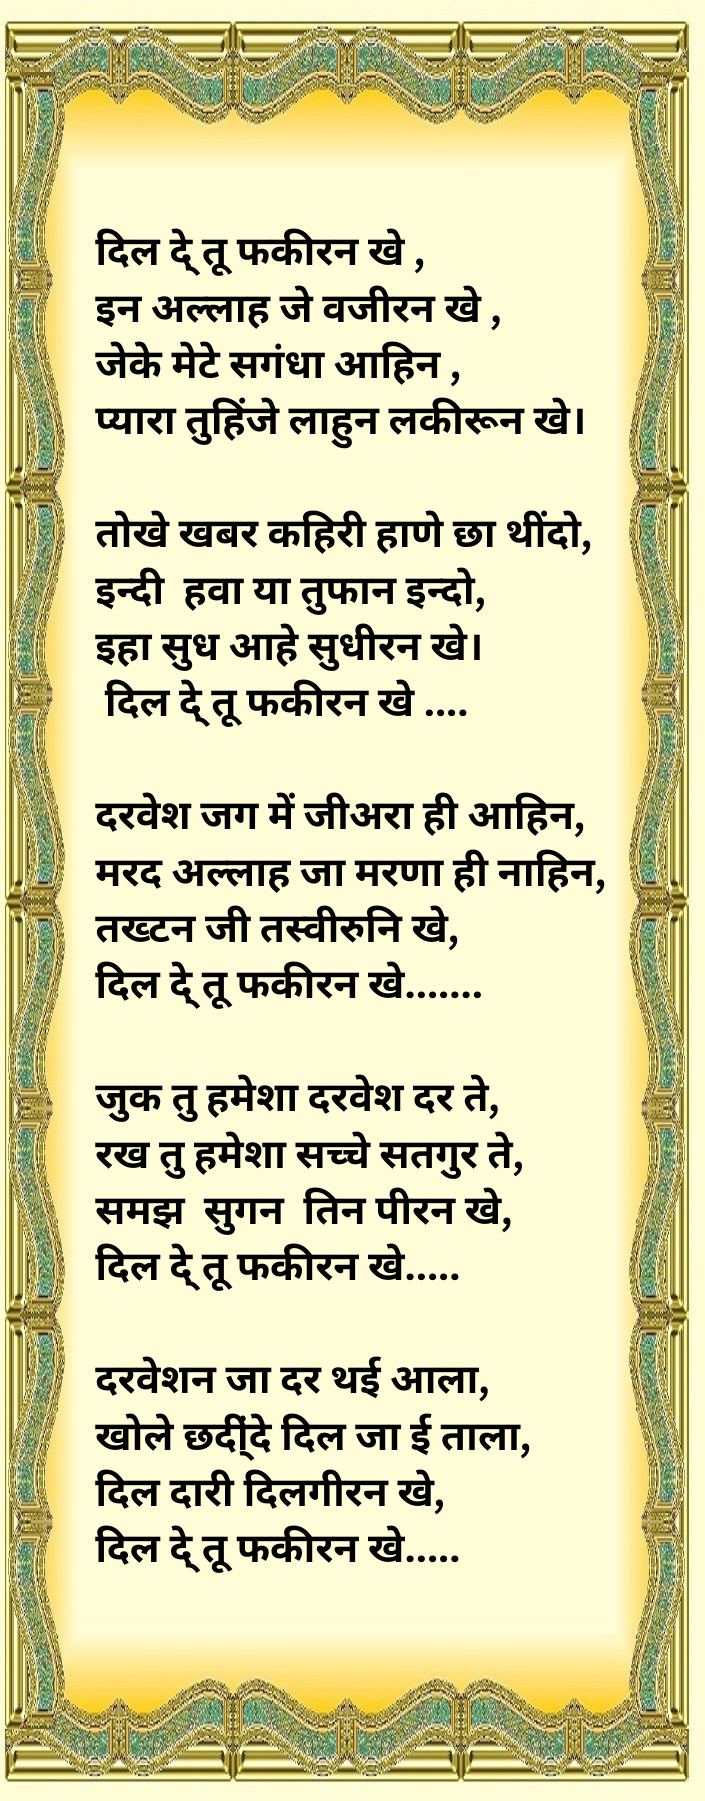 दिल दे् तू फकीरन खे ,
इन अल्लाह जे वजीरन खे ,
जेके मेटे सगंधा आहिन ,
प्यारा तुहिंजे लाहुन लकीरून खे।
तोखे खबर कहिरी हाणे छा थींदो,
इन्दी हवा या तुफान इन्दो,
इहा सुध आहे सुधीरन खे।
दिल दे् तू फकीरन खे ....
दरवेश जग में जीअरा ही आहिन,
मरद अल्लाह जा मरणा ही नाहिन,
तख्टन जी तस्वीरुनि खे,
दिल दे् तू फकीरन खे.......
जुक तु हमेशा दरवेश दर ते,
रख तु हमेशा सच्चे सतगुर ते,
समझ सुगन तिन पीरन खे,
दिल दे् तू फकीरन खे.....
दरवेशन जा दर थई आला,
खोले छदीं्दे दिल जा ई ताला,
दिल दारी दिलगीरन खे,
दिल दे् तू फकीरन खे.....